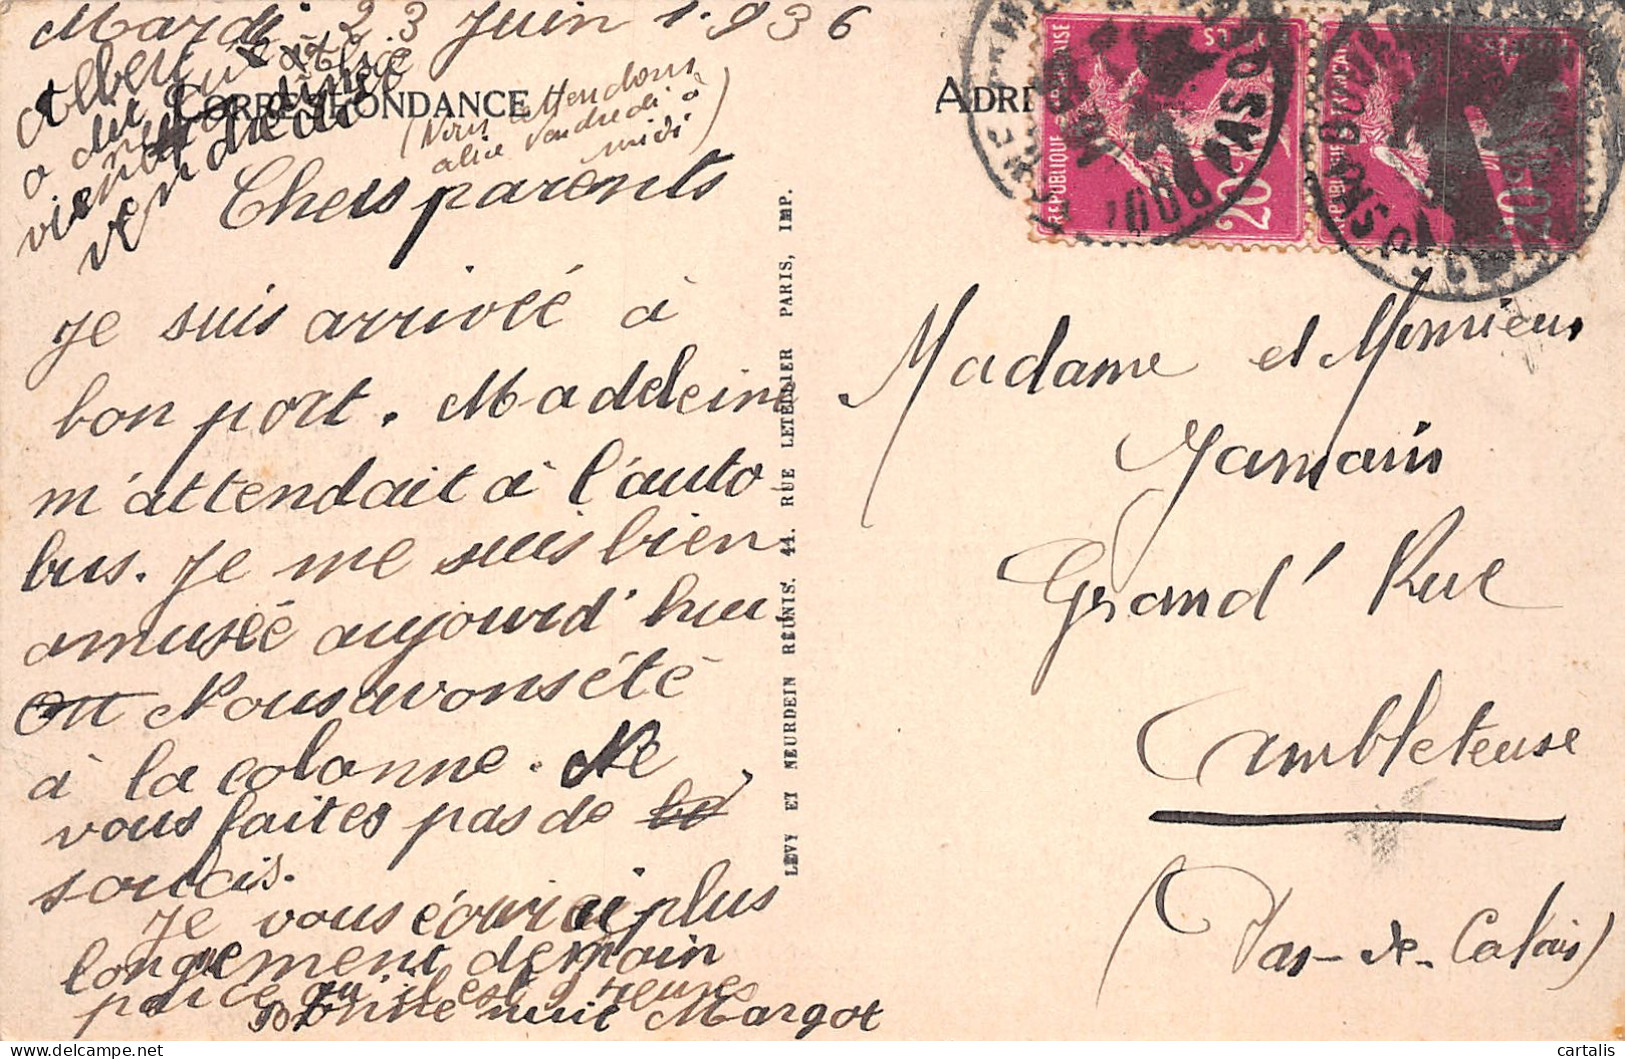 Mardi 23 Juin 1936
Albert
a dit
viendrait
vendredi
CORRESPONDANCE
(Nous attendons
alice vendredi à
midi)
Chers parents
Je suis arrivée à
bon port. Madeleine
m'attendait à l'auto
bus. Je me suis bien
amusée aujourd'hui
Nous avons été
à la colonne. Ne
vous faites pas de
soucis.
Je vous écrirai plus
longuement demain
parce qu'il est 9 heures
Bonne nuit Margot
LÉVY ET NEURDEIN RÉUNIS. 44. RUE LETELLIER PARIS, IMP.
ADRE
REPUBLIQUE FRANÇAISE
POSTES
20c
REPUBLIQUE FRANÇAISE
POSTES
20c
PAS
BOU
Madame et Monsieur
Jamain
Grand' Rue
Ambleteuse
(Pas-de-Calais)
cartalis